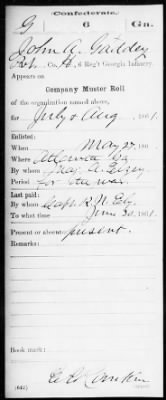 Confederate.
G 6 Ga.
John A. Gaddey
Pvt., Co. G, 6 Reg't Georgia Infantry.
Appears on
Company Muster Roll
of the organization named above,
for July & Aug, 1861.
Enlisted:
When May 27, 1861
Where Atlanta Ga
By whom
Period for the war
Last paid:
By whom Capt. R. N.
To what time June 30, 1861.
Present or absent present.
Remarks:
Book mark:
(642)